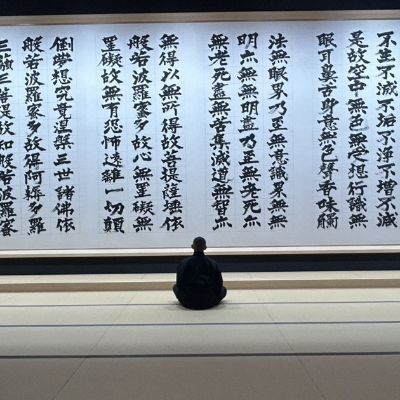 不生不滅不垢不淨不增不減
是故空中無色無受想行識無
眼耳鼻舌身意無色聲香味觸
法無眼界乃至無意識界無無
明亦無無明盡乃至無老死亦
無老死盡無苦集滅道無智亦
無得以無所得故菩提薩埵依
般若波羅蜜多故心無罣礙無
罣礙故無有恐怖遠離一切顛
倒夢想究竟涅槃三世諸佛依
般若波羅蜜多故得阿耨多羅
三藐三菩提故知般若波羅蜜